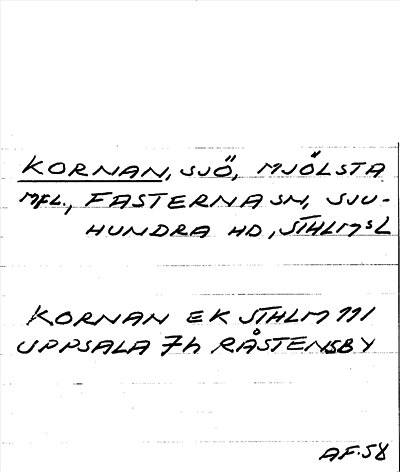 KORNAN, SJÖ, MJÖLSTA
MFL., FASTERNA SN, SJU-
HUNDRA HD, STHLMSL
KORNAN EK STHLM 111
UPPSALA 7h RÅSTENSBY
AF.58